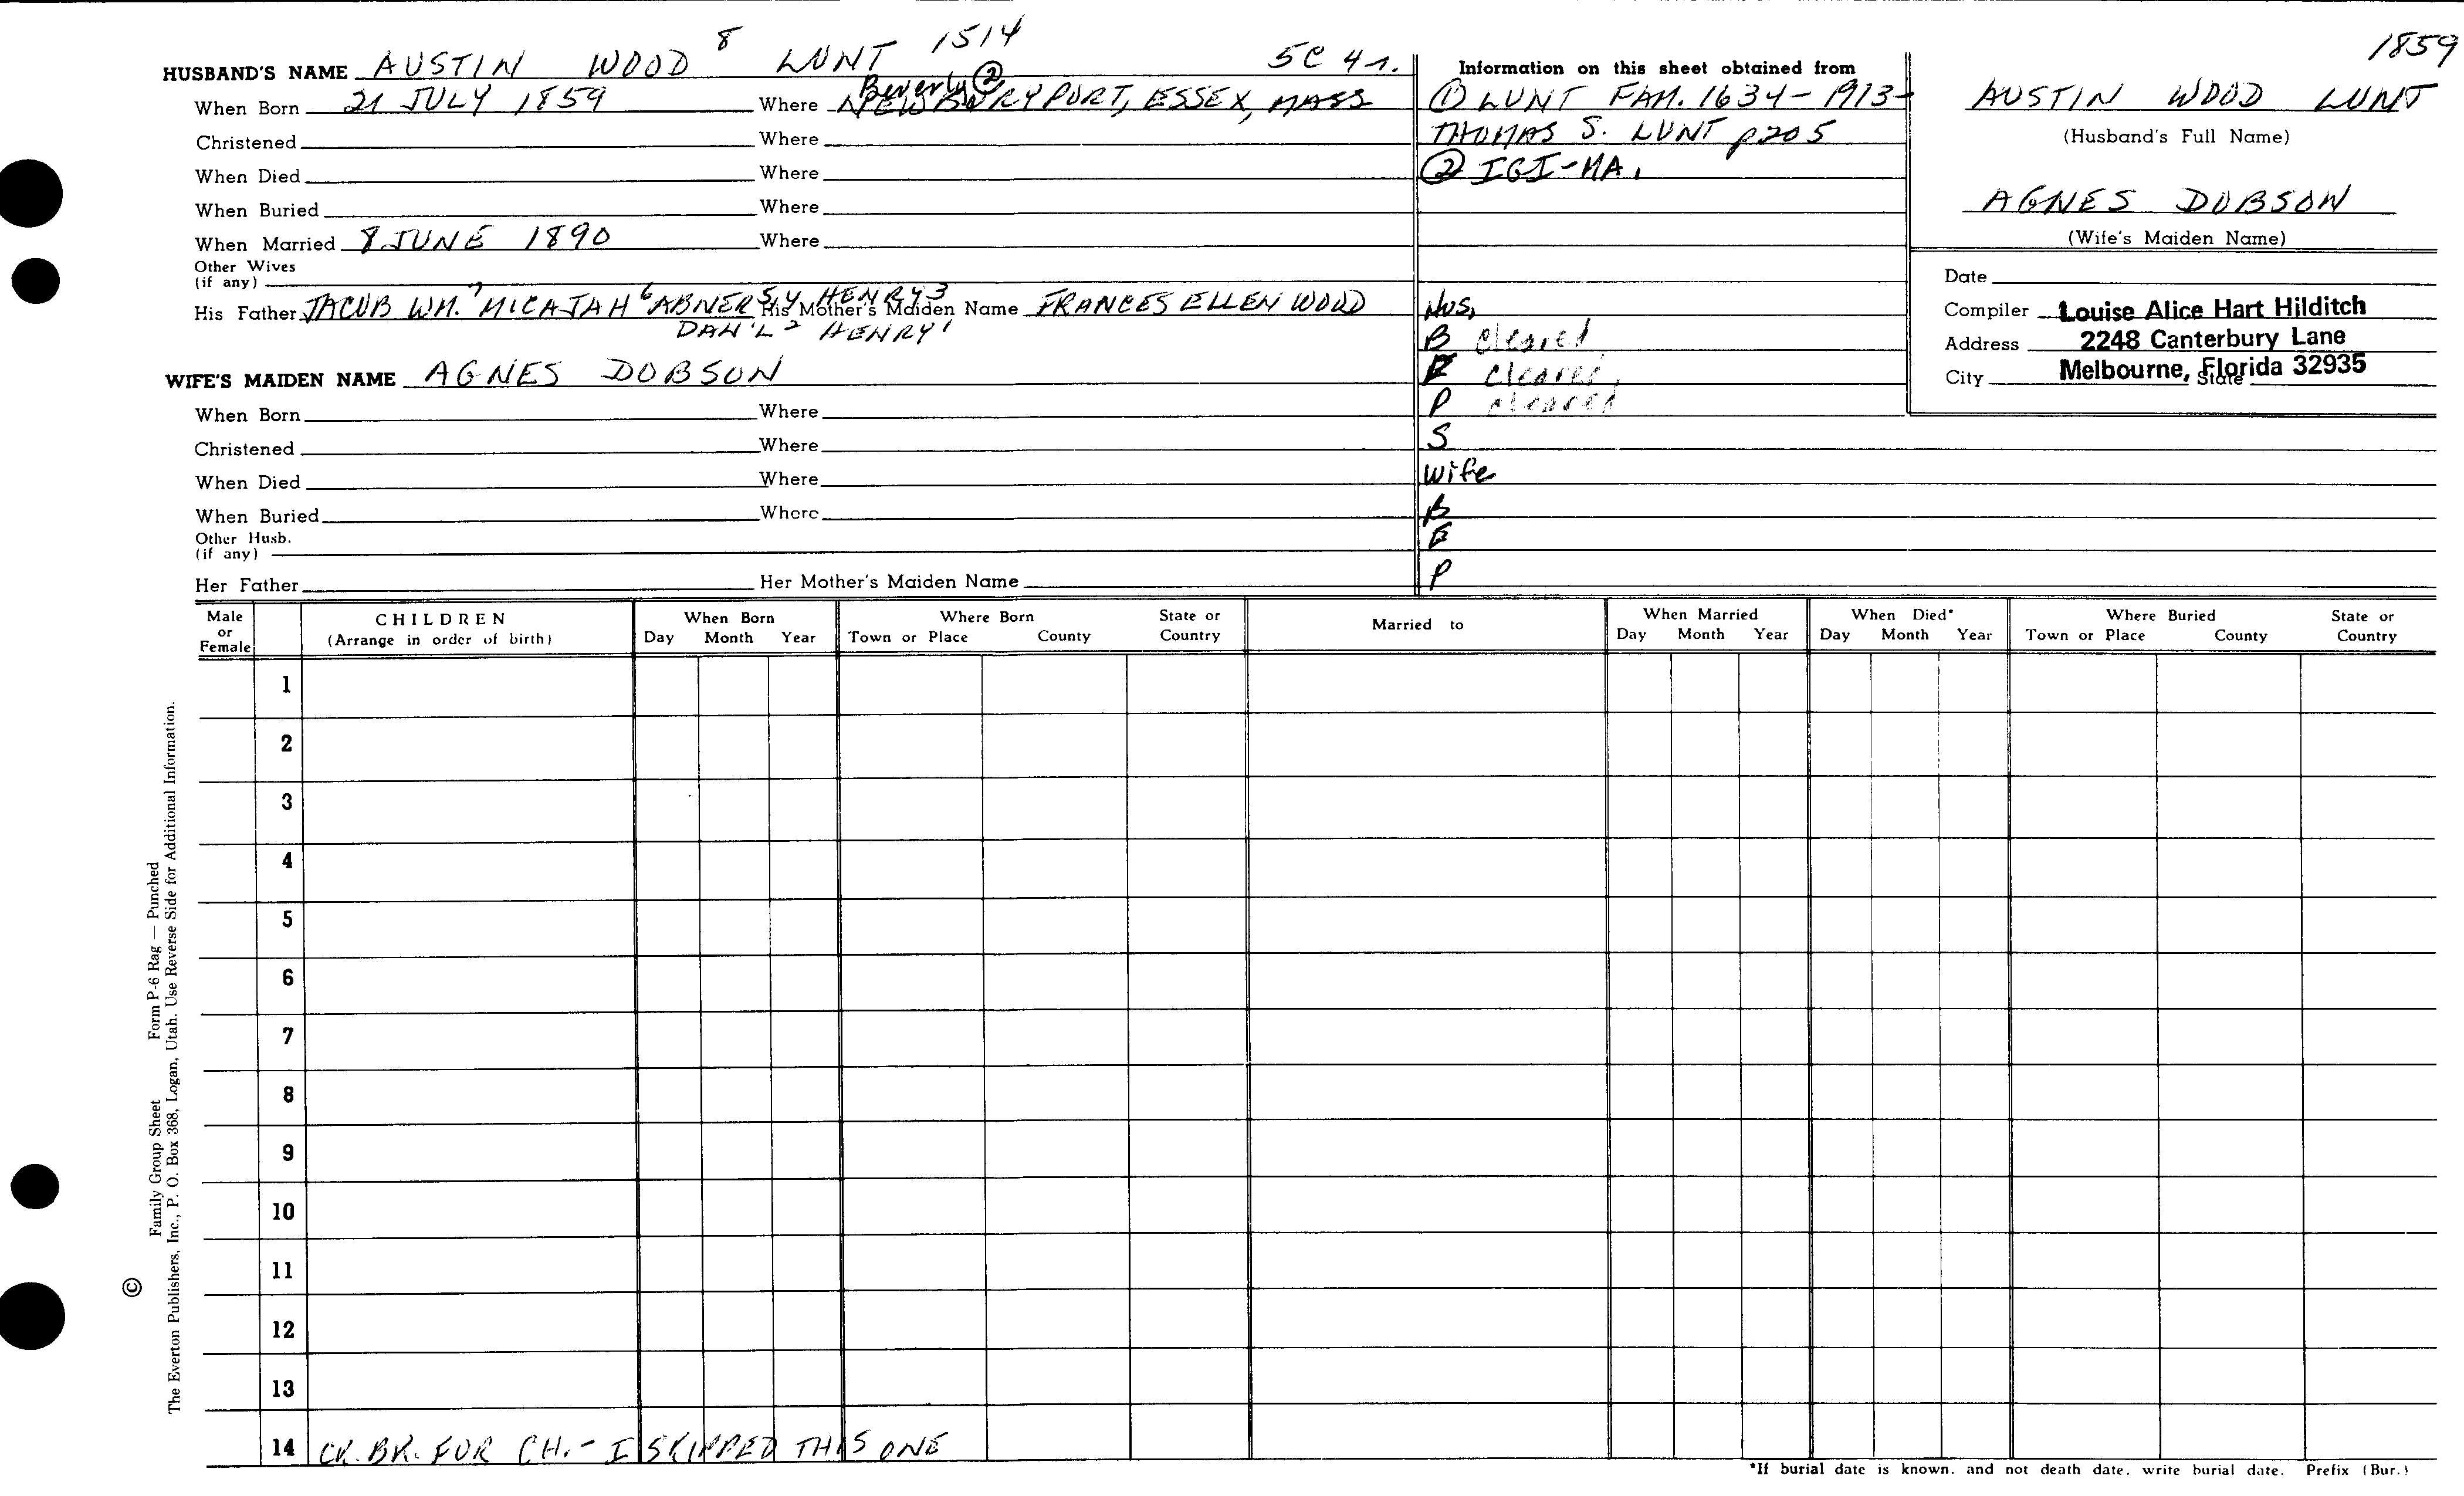 1859
HUSBAND'S NAME AUSTIN WOOD 8 LUNT 1514 5C 4r.
When Born 21 JULY 1859 Where NEWBURYPORT, ESSEX, MASS
Beverly ②
Christened Where
When Died Where
When Buried Where
When Married 8 JUNE 1890 Where
Other Wives
(if any)
His Father JACOB WM. 7 MICAJAH 6 ABNER 5,4 HENRY 3 His Mother's Maiden Name FRANCES ELLEN WOOD
DAN'L 2 HENRY 1
WIFE'S MAIDEN NAME AGNES DOBSON
When Born Where
Christened Where
When Died Where
When Buried Where
Other Husb.
(if any)
Her Father Her Mother's Maiden Name
Information on this sheet obtained from
① LUNT FAM. 1634-1913-
THOMAS S. LUNT p205
② IGI-MA.
Hus.
B cleared
E cleared,
P cleared
S
Wife
B
E
P
AUSTIN WOOD LUNT
(Husband's Full Name)
AGNES DOBSON
(Wife's Maiden Name)
Date
Compiler Louise Alice Hart Hilditch
Address 2248 Canterbury Lane
City Melbourne, Florida 32935 State
Male or Female
CHILDREN
(Arrange in order of birth)
When Born
Day Month Year
Where Born State or
Town or Place County Country
Married to
When Married
Day Month Year
When Died*
Day Month Year
Where Buried State or
Town or Place County Country
1
2
3
4
5
6
7
8
9
10
11
12
13
14 CK. BK. FOR CH. - I SKIPPED THIS ONE
*If burial date is known, and not death date, write burial date. Prefix (Bur.)
© Family Group Sheet Form P-6 Rag — Punched
The Everton Publishers, Inc., P. O. Box 368, Logan, Utah. Use Reverse Side for Additional Information.